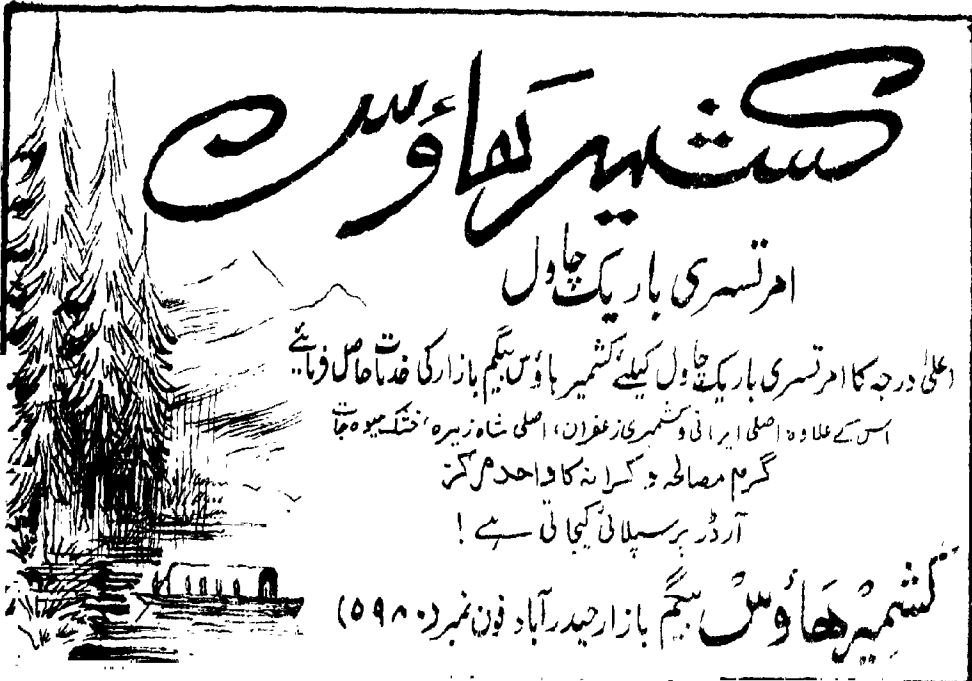 کشمیر ھاؤس
امرتسری باریک چاول
اعلیٰ درجہ کا امرتسری باریک چاول کیلئے کشمیر ہاؤس بیگم بازار کی خدمات حاصل فرمائیے
اس کے علاوہ اصلی ایرانی و کشمیری زعفران، اصلی شاہ زیرہ، خشک میوہ جات
گرم مصالحہ و کرانہ کا واحد مرکز
آرڈر پر سپلائی کیجاتی ہے !
کشمیر ھاؤس بیگم بازار حیدرآباد فون نمبر (۵۹۸۰)